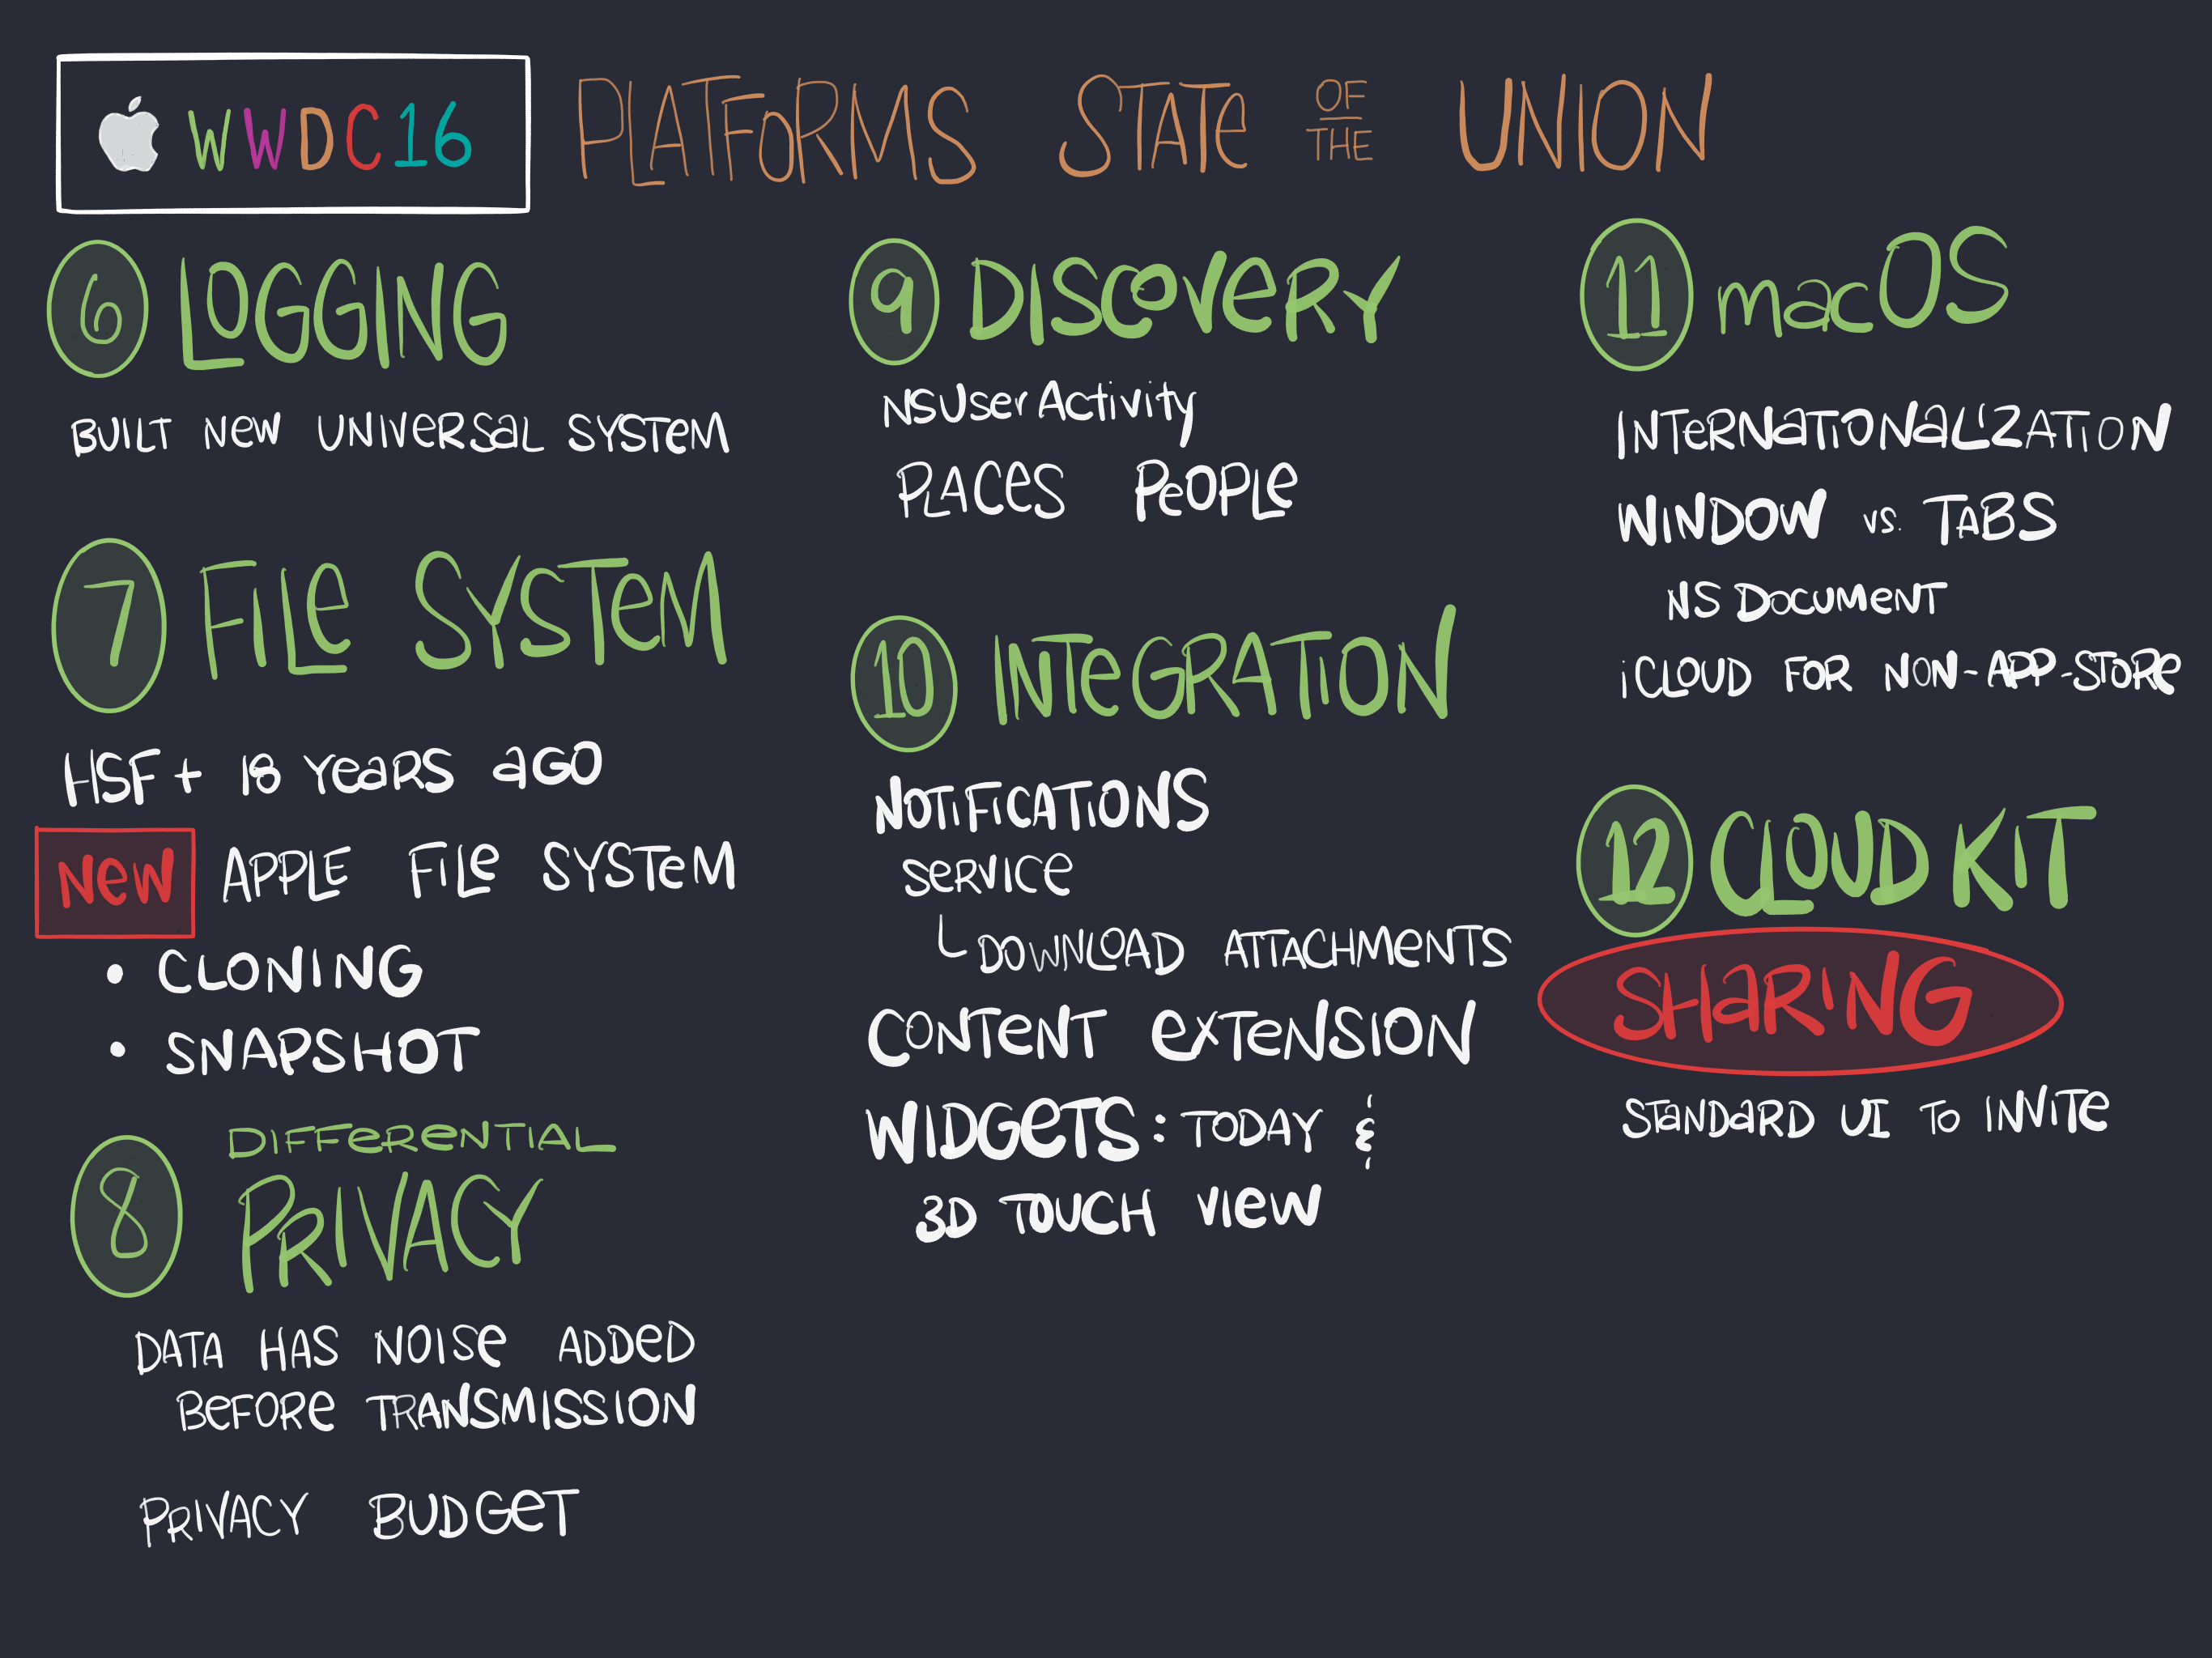 WWDC16 PLATFORMS STATE OF THE UNION
6 LOGGING
BUILT NEW UNIVERSAL SYSTEM
7 FILE SYSTEM
HSF+ 18 YEARS AGO
NEW APPLE FILE SYSTEM
• CLONING
• SNAPSHOT
8 DIFFERENTIAL
PRIVACY
DATA HAS NOISE ADDED
BEFORE TRANSMISSION
PRIVACY BUDGET
9 DISCOVERY
NSUserActivity
PLACES PEOPLE
10 INTEGRATION
NOTIFICATIONS
SERVICE
DOWNLOAD ATTACHMENTS
CONTENT EXTENSION
WIDGETS: TODAY &
3D TOUCH VIEW
11 macOS
INTERNATIONALIZATION
WINDOW vs. TABS
NSDOCUMENT
iCLOUD FOR NON-APP-STORE
12 CLOUDKIT
SHARING
STANDARD UI TO INVITE